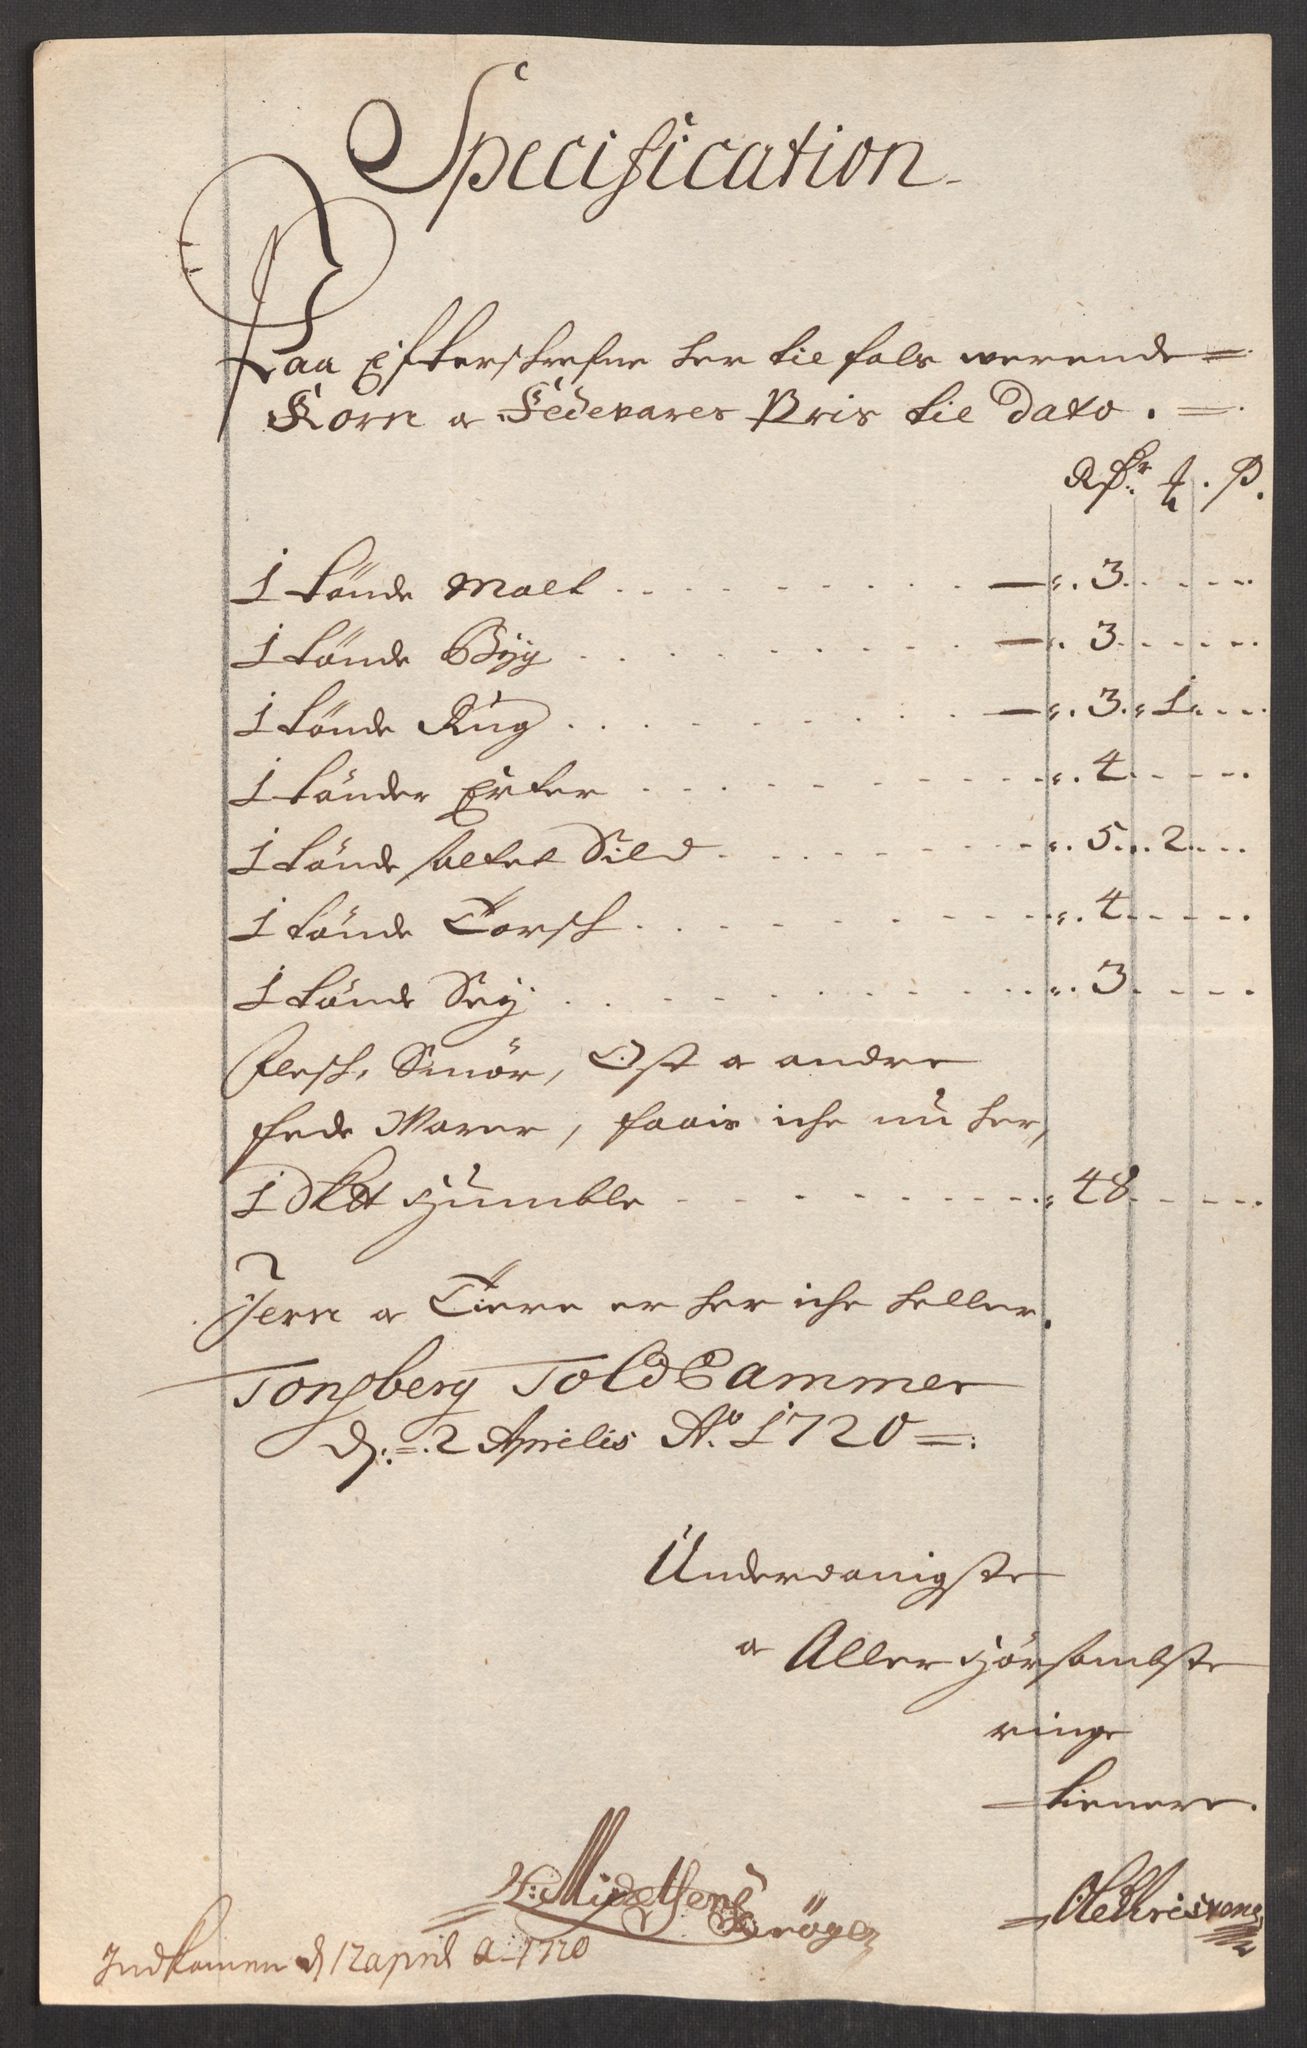 Specification
Paa Efterskrefne her til fals werende
Korn a Fedevares Priis til Dato.
Rdr. ₰. S.
1 tönde Malt - 3
1 tönde Byg - 3
1 tönde Rug - 3 1
1 tönder Erter 4
1 tönde saltet Sild 5 2
1 tönde Torsk 4
1 tönde Sey 3
Flesk, Smör, Ost a andre
fede Warer, faais iche nu her,
1 Sk℔ Humble 48
Jern a Tiere er her iche heller.
Tonsberg Told Cammer
d: 2 Aprilis Ao. 1720
Underdanigste
a Aller hörsambste
ringe
tienere.
Kröger
Indkommen d 12 april a 1720